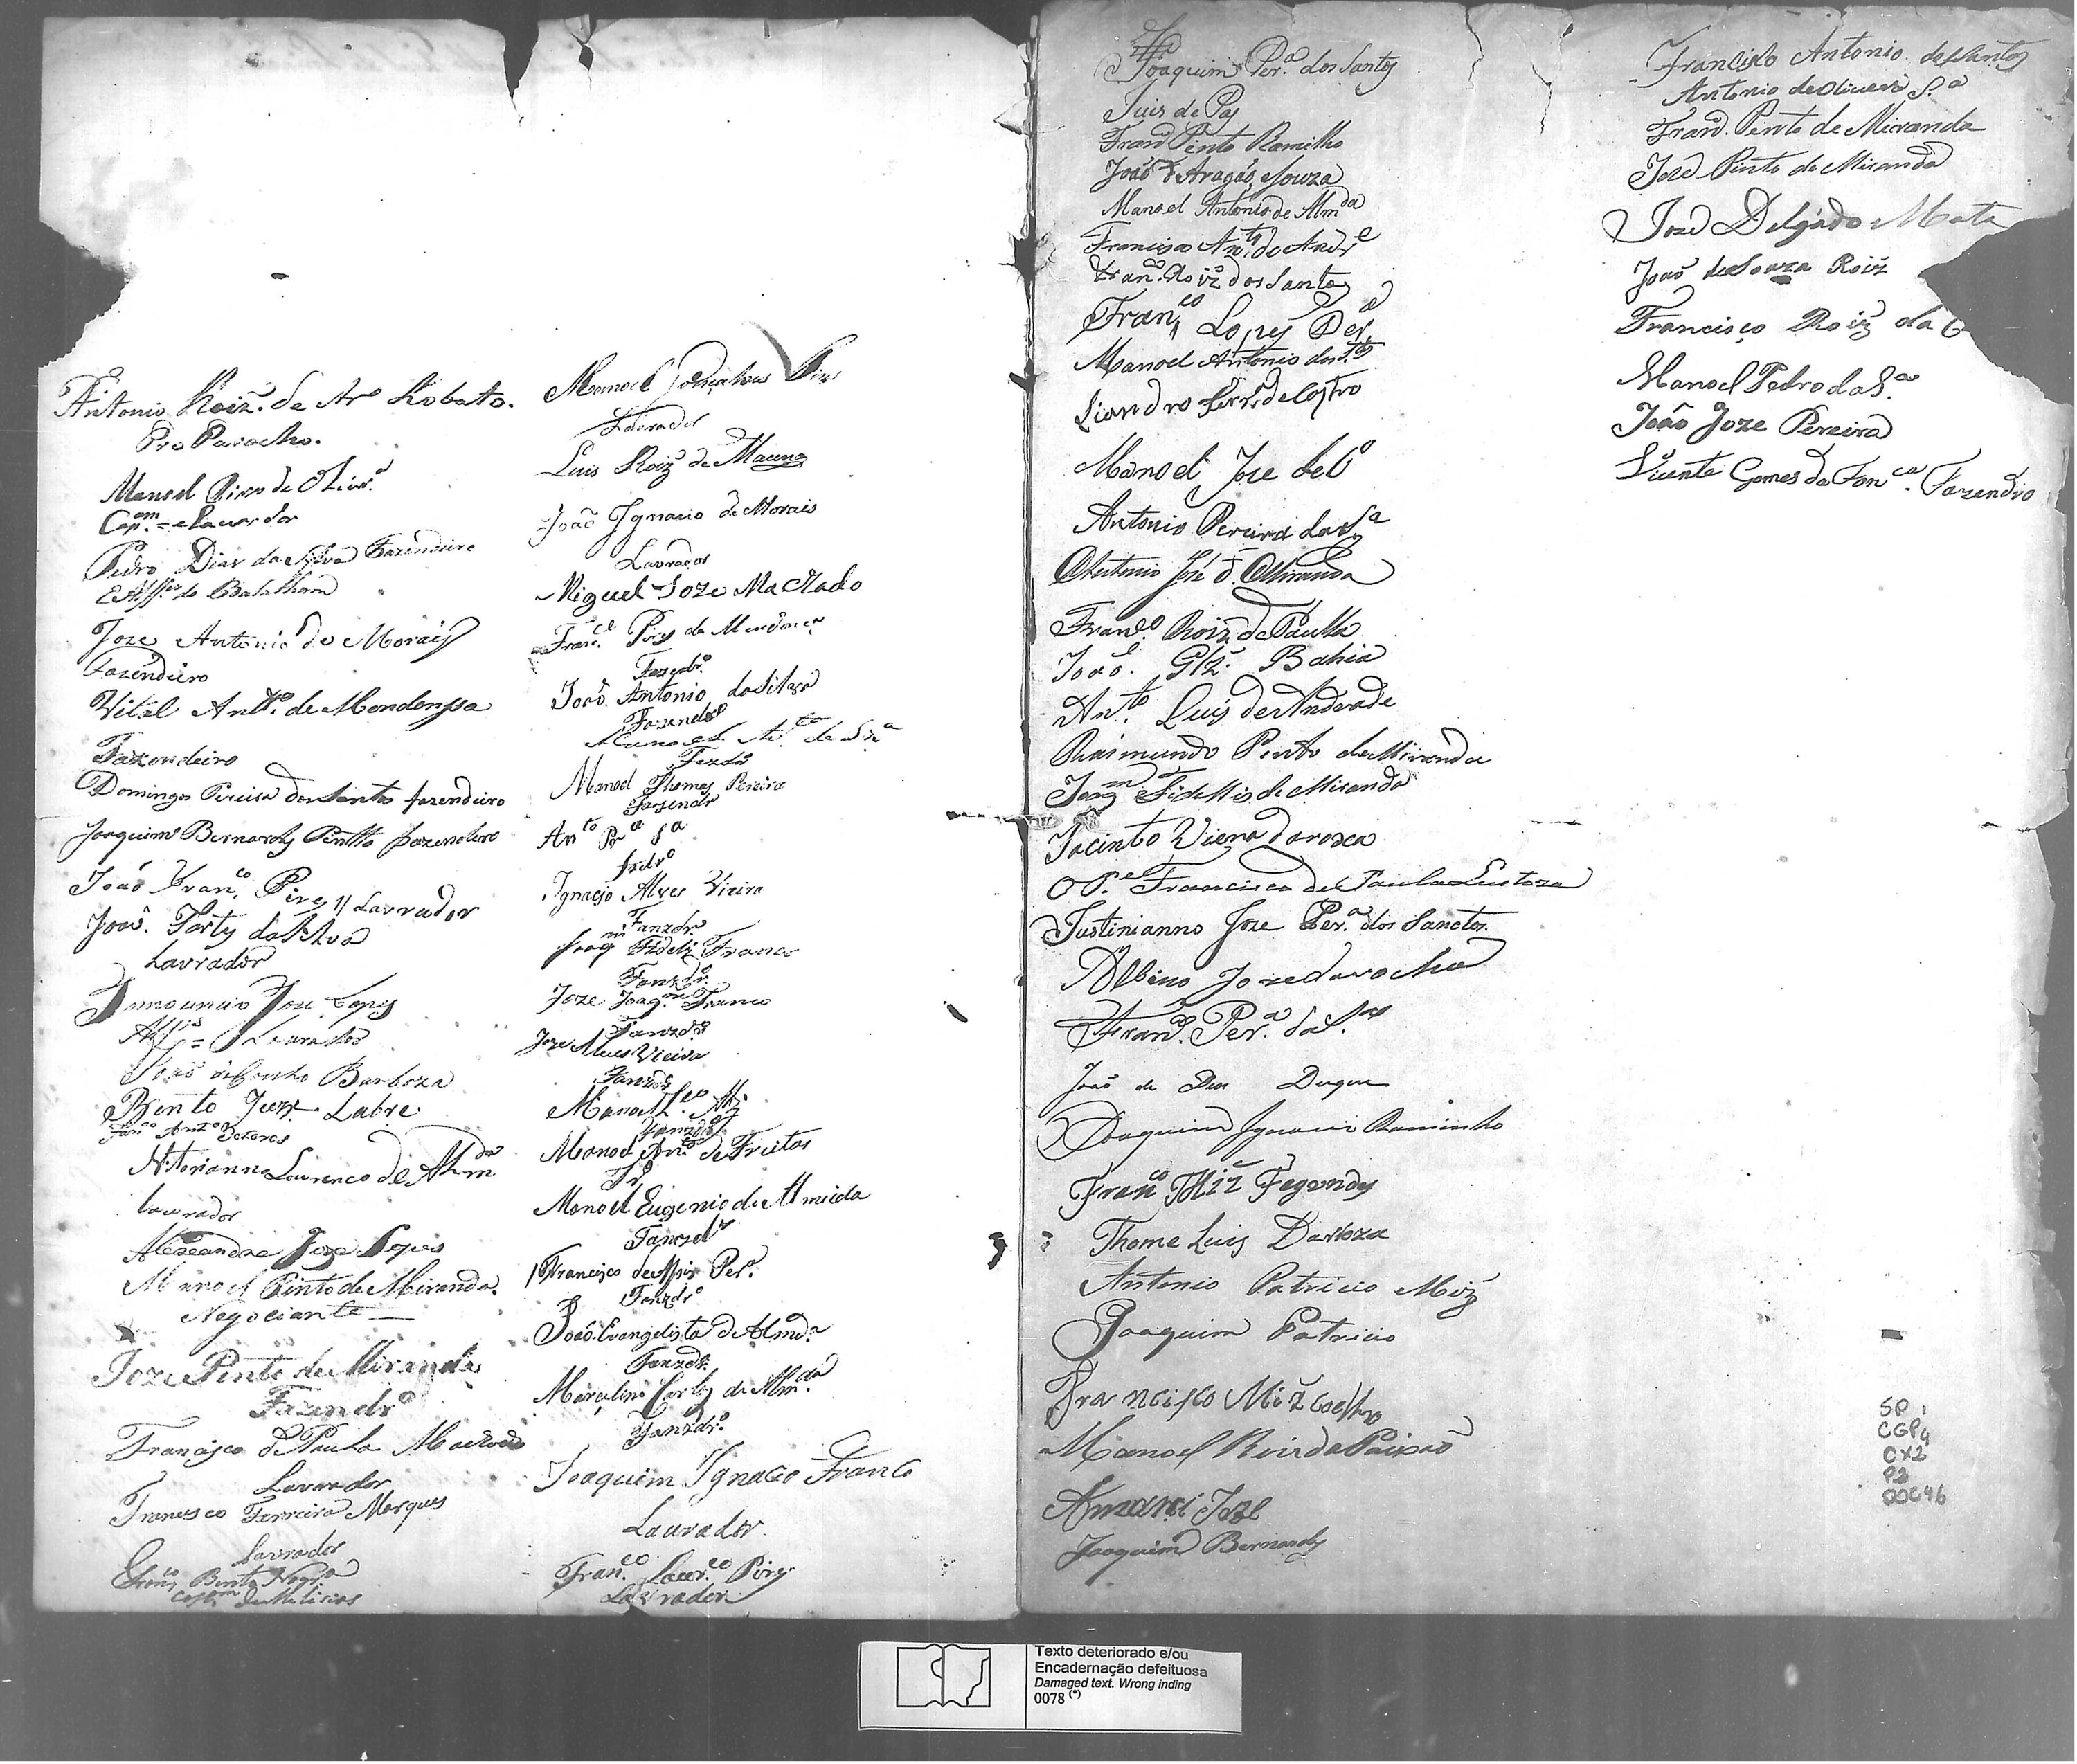 Antonio Roiz. de Ar.º Lobato.
Pro Parocho.
Manoel Pires de Olivr.ª
Cap.am = e Lavrador
Pedro Dias da Silva Fazendeiro
E Alff.es do Batalham
Joze Antonio de Morais
Fazendeiro
Vital Antt.º de Mendonssa
Fazendeiro
Domingos Pereira dos Santos fazendeiro
Joaquim Bernardes Pintto fazendero
João Fran.co Pires // Lavrador
João. Forty da Silva
Lavrador
Joze Lopes
João da Cunha Barboza
Bento Labre
Lourenco de Alm.da
laurador
Alexandre Joze Lopes
Manoel Pinto de Miranda.
Negociante
Joze Pinto de Miranda
Fazendr.º
Francisco de Paula Machado
Lavrador
Francisco Ferreira Marques
lavrador
Manoel Gonçalves Pires
Lavrador
Luis Roiz de
João Ignacio de Morais
Lavrador
Miguel Joze Machado
Fran.co Pires de Mendonca
Fazendr.º
João Antonio da Silva
Fazendr.º
Manoel de
Manoel Thomas Pereira
Fazendr
An.to Pr.ª S.ª
fzdr.º
Ignacio Alves Vieira
Fanzdr.º
Joaq.m Fideliz Franco
Fanzdr.º
Joze Joaq.m Franco
Fanzdr.º
Joze Alves Vieira
Fanzdr
Manoel
Fanzdr
Manoel An.to de Freitas
Manoel Eugenio de Almeida
Fanozdr
Francisco de Assis Per.ª
Fanzdr.º
João. Evangelista de Almd.ª
Fanzdr.
Marçelino Carlos de Alm.da
Fanzdr.º
Joaquim Ignacio Franco
Laurador
Fran.co Laur.co Pires
Lavrador
Joaquim Per.ª dos Santos
Juis de Pas
Fran.co Pinto Ramilho
João de Aragão e Souza
Manoel Antonio de Alm.da
Francisco An.to de Andr.e
Fran.co Roiz dos Santos
Fran.co Lopes
Manoel Antonio dos S.tos
Liandro Ferr.ª de Castro
Manoel Joze de
Antonio Pereira da S.ª
Antonio José d. Miranda
Fran.co Roiz de Paulla
João. Glz. Bahia
An.to Luis de Andrade
Raimundo Pinto de Miranda
Joaq.m Fidellis de Miranda
Jacinto Viera da roxa
O P.e Francisco de Paula Lustoza
Justinianno Joze Per.ª dos Sanctos
Albino Joze da rocha
Fran.co Per.ª da S.ª
João de Deos Duque
Joaquim Ignacio Raminho
Fran.co Miz Fagondes
Thome Luis Barboza
Antonio Patricio Miz
Joaquim Patricio
Francisco Miz Coelho
Manoel Roiz da Paixão
Joze
Joaquim Bernardes
Francisco Antonio de Santos
Antonio de Olivera S.ª
Fran.co Pinto de Miranda
José Pinto de Miranda
José Delgado Mota
João de Souza Roiz
Francisco Roiz da C
Manoel Pedro da S.ª
João Joze Pereira
Vicente Gomes da Fon.ca Fazendro
SP 1
CGP4
CX2
P2
DOC46
Texto deteriorado e/ou
Encadernação defeituosa
Damaged text. Wrong inding
0078 (*)